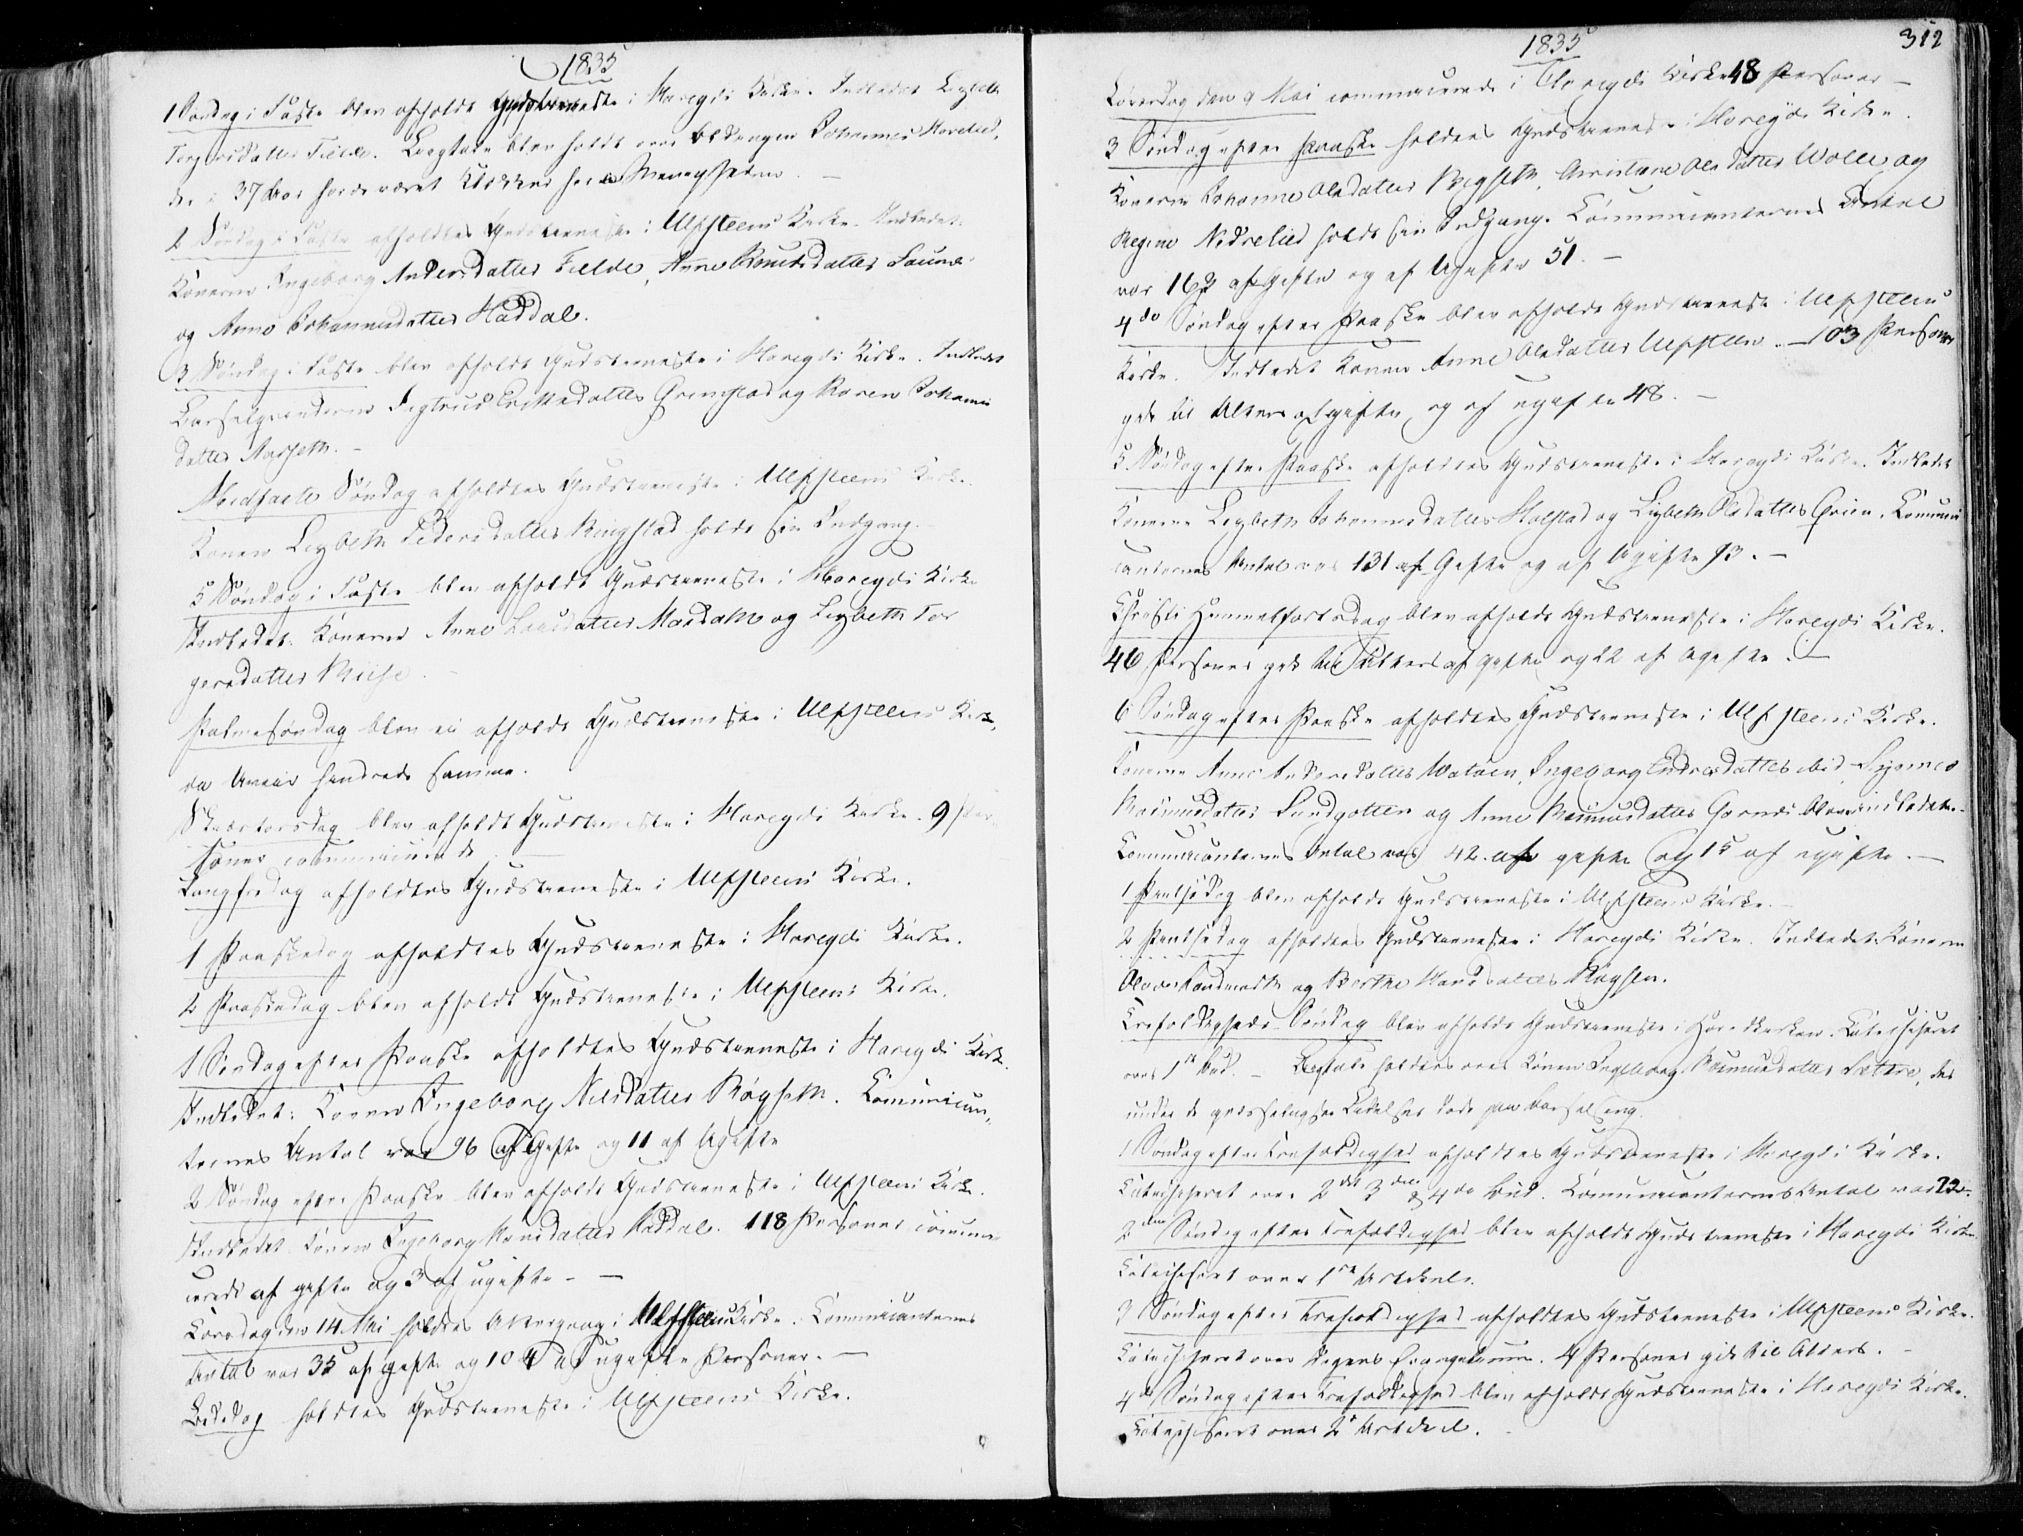 1835
1 Søndag i Faste blev afholdt Gudstieneste i Hareids Kirke. Indledet Lisbeth
Torgersdatter Fielde. Ligtale blev holdt over Johannes Hareid,
der i 37 Aar havde været Klokker her i Menigheden. —
2 Søndag i Faste afholdtes Gudstieneste i Ulfsteens Kirke. Indledet:
Konerne Ingeborg Andersdatter Fielde, Anne Knudsdatter Saunes
og Anne Johannesdatter Haddal.
3 Søndag i Faste blev afholdt Gudstieneste i Hareids Kirke. Indledet
Barselqvinderne Sigtrud Eriksdatter Grimstad og Karen Johannes
datter Aarseth. —
Midfaste Søndag afholdtes Gudstieneste i Ulfsteens Kirke.
Konen Lisbeth Pedersdatter Ringstad holdt sin Indgang.
5 Søndag i Faste blev afholdt Gudstieneste i Hareids Kirke
Indledet: Konerne Anne Larsdatter Mardal og Lisbeth Tor
gersdatter Riise. —
Palmesøndag blev ei afholdt Gudstieneste i Ulfsteens Kirke,
da Uveir hindrede samme.
Skiærtorsdag blev afholdt Gudstieneste i Hareids Kirke. 9 Per
soner communicerede —
Langfredag afholdtes Gudstieneste i Ulfsteens Kirke.
1 Paaskedag afholdtes Gudstieneste i Hareids Kirke.
2 Paaskedag blev afholdt Gudstieneste i Ulfsteens Kirke.
1 Søndag efter Paaske afholdtes Gudstieneste i Hareids Kirke.
Indledet: Konen Ingeborg Nilsdatter Røyseth. Communican
ternes Antal var 96 af Gifte og 11 af Ugifte
2 Søndag efter Paaske blev afholdt Gudstieneste i Ulfsteens Kirke.
Indledet Konen Ingeborg Hansdatter Haddal. 118 Personer commu
nicerede af gifte og 3 af ugifte. —
Løverdag den 14 Mai holdtes Altergang i Ulfsteens Kirke. Communicanternes
Antal var 35 af gifte og 104 af ugifte Personer. —
Bededag holdtes Gudstieneste i Ulfsteens Kirke.
1835
312
Løverdag den 9 Mai communicerede i Hareids Kirke 48 Personer —
3 Søndag efter Paaske holdtes Gudstieneste i Hareids Kirke.
Konerne Johanne Olsdatter Røyseth, Christiane Olsdatter Wolle og
Regine Nedrelied holdt sin Indgang. Communicanternes Antal
var 162 af Gifte og af Ugifte 51. —
4de Søndag efter Paaske blev afholdt Gudstieneste i Ulfsteens
Kirke. Indledet Konen Anne Olsdatter Ulfsteen. — 103 Personer
gik til Alters af gifte og af ugifte 48. —
5 Søndag efter Paaske afholdtes Gudstieneste i Hareids Kirke. Indledet
Konerne Lisbeth Johannesdatter Holstad og Lisbeth Olsdatter Grien. Communi
canternes Antal var 131 af Gifte og af Ugifte 93. —
Christi Himmelfartsdag blev afholdt Gudstieneste i Hareids Kirke.
46 Personer gik til Alters af gifte og 22 af Ugifte. —
6 Søndag efter Paaske afholdtes Gudstieneste i Ulfsteens Kirke.
Konerne Anne Andersdatter Watøen, Ingeborg Endresdatter ibid,
Rasmusdatter Sundgotten og Anne Rasmusdatter Gaarnes bleve indledede.
Communicanternes Antal var 42 af gifte og 15 af ugifte. —
1 Pintsedag blev afholdt Gudstieneste i Ulfsteens Kirke. —
2 Pintsedag afholdtes Gudstieneste i Hareids Kirke. Indledet: Konerne
og Berthe Hansdatter Røyset.
Trefoldigheds-Søndag blev afholdt Gudstieneste i Hovedkirken. Catechiseret
over 1ste Bud. — Ligtale holdtes over Konen Ingeborg Rasmusdatter Sættre, der
under de døde paa Barselseng.
1 Søndag efter Trefoldighed afholdtes Gudstieneste i Hareids Kirke.
Catechiseret over 2det 3die & 4de Bud. Communicanternes Antal var 72.
2den Søndag efter Trefoldighed blev afholdt Gudstieneste i Hareids Kirke.
Catechiseret over 1ste Artikel.
3 Søndag efter Trefoldighed afholdtes Gudstieneste i Ulfsteens Kirke.
Catechiseret over Dagens Evangelium. 4 Personer gik til Alters.
4de Søndag efter Trefoldighed blev afholdt Gudstieneste i Hareids Kirke.
Catechiseret over 2 Artikel.